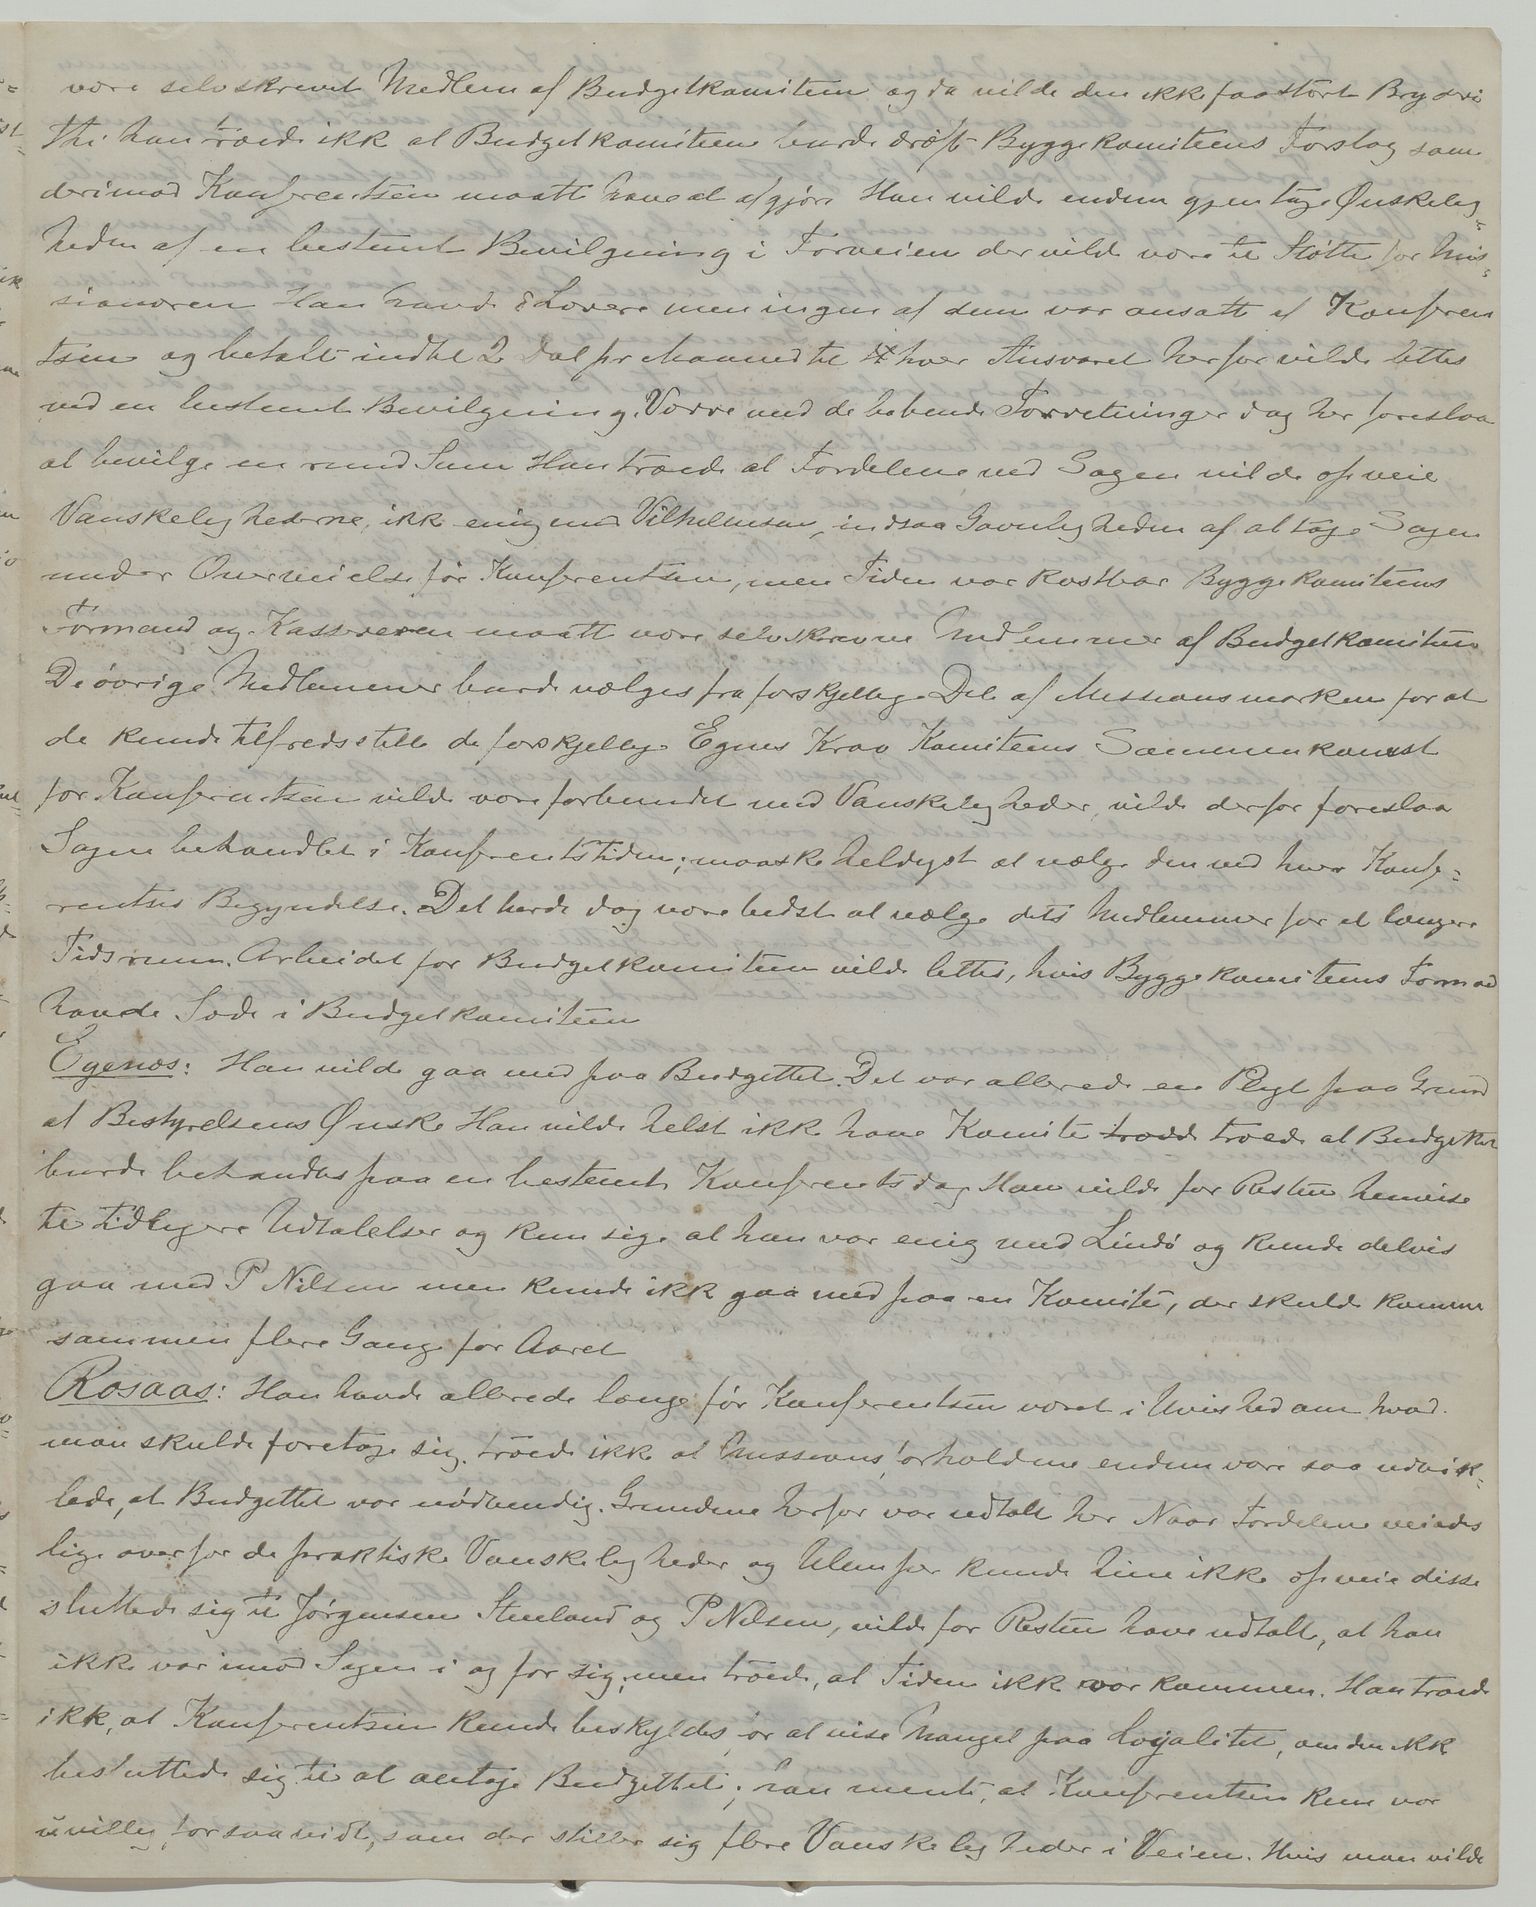 være selvskrevet Medlem af Budgetkomiteen og da vilde den ikke faa stort Bryderi
thi han troede ikke at Budgetkomiteen burde drøfte Byggekomiteens Forslag som
derimod Konferentsen maatte have at afgjøre Han vilde endnu gjentage Ønskelig-
heden af en bestemt Bevilgning i Forveien der vilde være til Støtte for Mis-
sionæren Han havde 8 Lærere men ingen af dem var ansatte af Konferen
tsen og betalt indtil 2 Dol pr Maaned til hver Ansvaret herfor vilde lettes
ved en bestemt Bevilgning. Værre med de løbende Forretninger dog her foreslaa
at bevilge en rund Sum Han troede at Fordelene ved Sagen vilde opveie
Vanskelighederne, ikke enig med Vilhelmsen, indsaa Gavnligheden af at tage Sagen
under Overveielse før Konferentsen, men Tiden var kostbar Byggekomiteens
Formand og Kassereren maatte være selvskrevne Medlemmer af Budgetkomiteen
De øvrige Medlemmer burde vælges fra forskjellige Dele af Missionsmarken for at
de kunde tilfredsstille de forskjellige Egnes Krav Komiteens Sammenkomst
før Konferentsen vilde være forbundet med Vanskeligheder, vilde derfor foreslaa
Sagen behandlet i Konferentstiden; maaske heldigst at vælge den ved hver Konfe-
rentses Begyndelse. Det burde dog være bedst at vælge dets Medlemmer for et længere
Tidsrum. Arbeidet for Budgetkomiteen vilde lettes, hvis Byggekomiteens Formand
havde Sæde i Budgetkomiteen
Egenæs: Han vilde gaa med paa Budgettet. Det var allerede en Pligt paa Grund
af Bestyrelsens Ønske Han vilde helst ikke have Komite troede at Budgettet
burde behandles paa en bestemt Konferentsdag Han vilde for Resten henvise
til tidligere Udtalelser og kun sige at han var enig med Lindø og kunde delvis
gaa med P Nilsen men kunde ikke gaa med paa en Komite, der skulde komme
sammen flere Gange for Aaret
Rosaas: Han havde allerede længe før Konferentsen været i Uvished om hvad
man skulde foretage sig, troede ikke at Missionsforholdene endnu vare saa udvik-
lede, at Budgettet var nødvendig. Grundene herfor var udtalt her Naar Fordelene veiedes
lige overfor de praktiske Vanskeligheder og Ulemper kunde hine ikke opveie disse
sluttede sig til Jørgensen Stueland og P Nilsen, vilde for Resten have udtalt, at han
ikke var imod Sagen i og for sig, men troede, at Tiden ikke var kommen. Han troede
ikke, at Konferentsen kunde beskyldes for at vise Mangel paa Loyalitet, om den ikke
besluttede sig til at antage Budgettet; han mente, at Konferentsen kun var
uvillig forsaavidt, som der stiller sig flere Vanskeligheder i Veien. Hvis man vilde